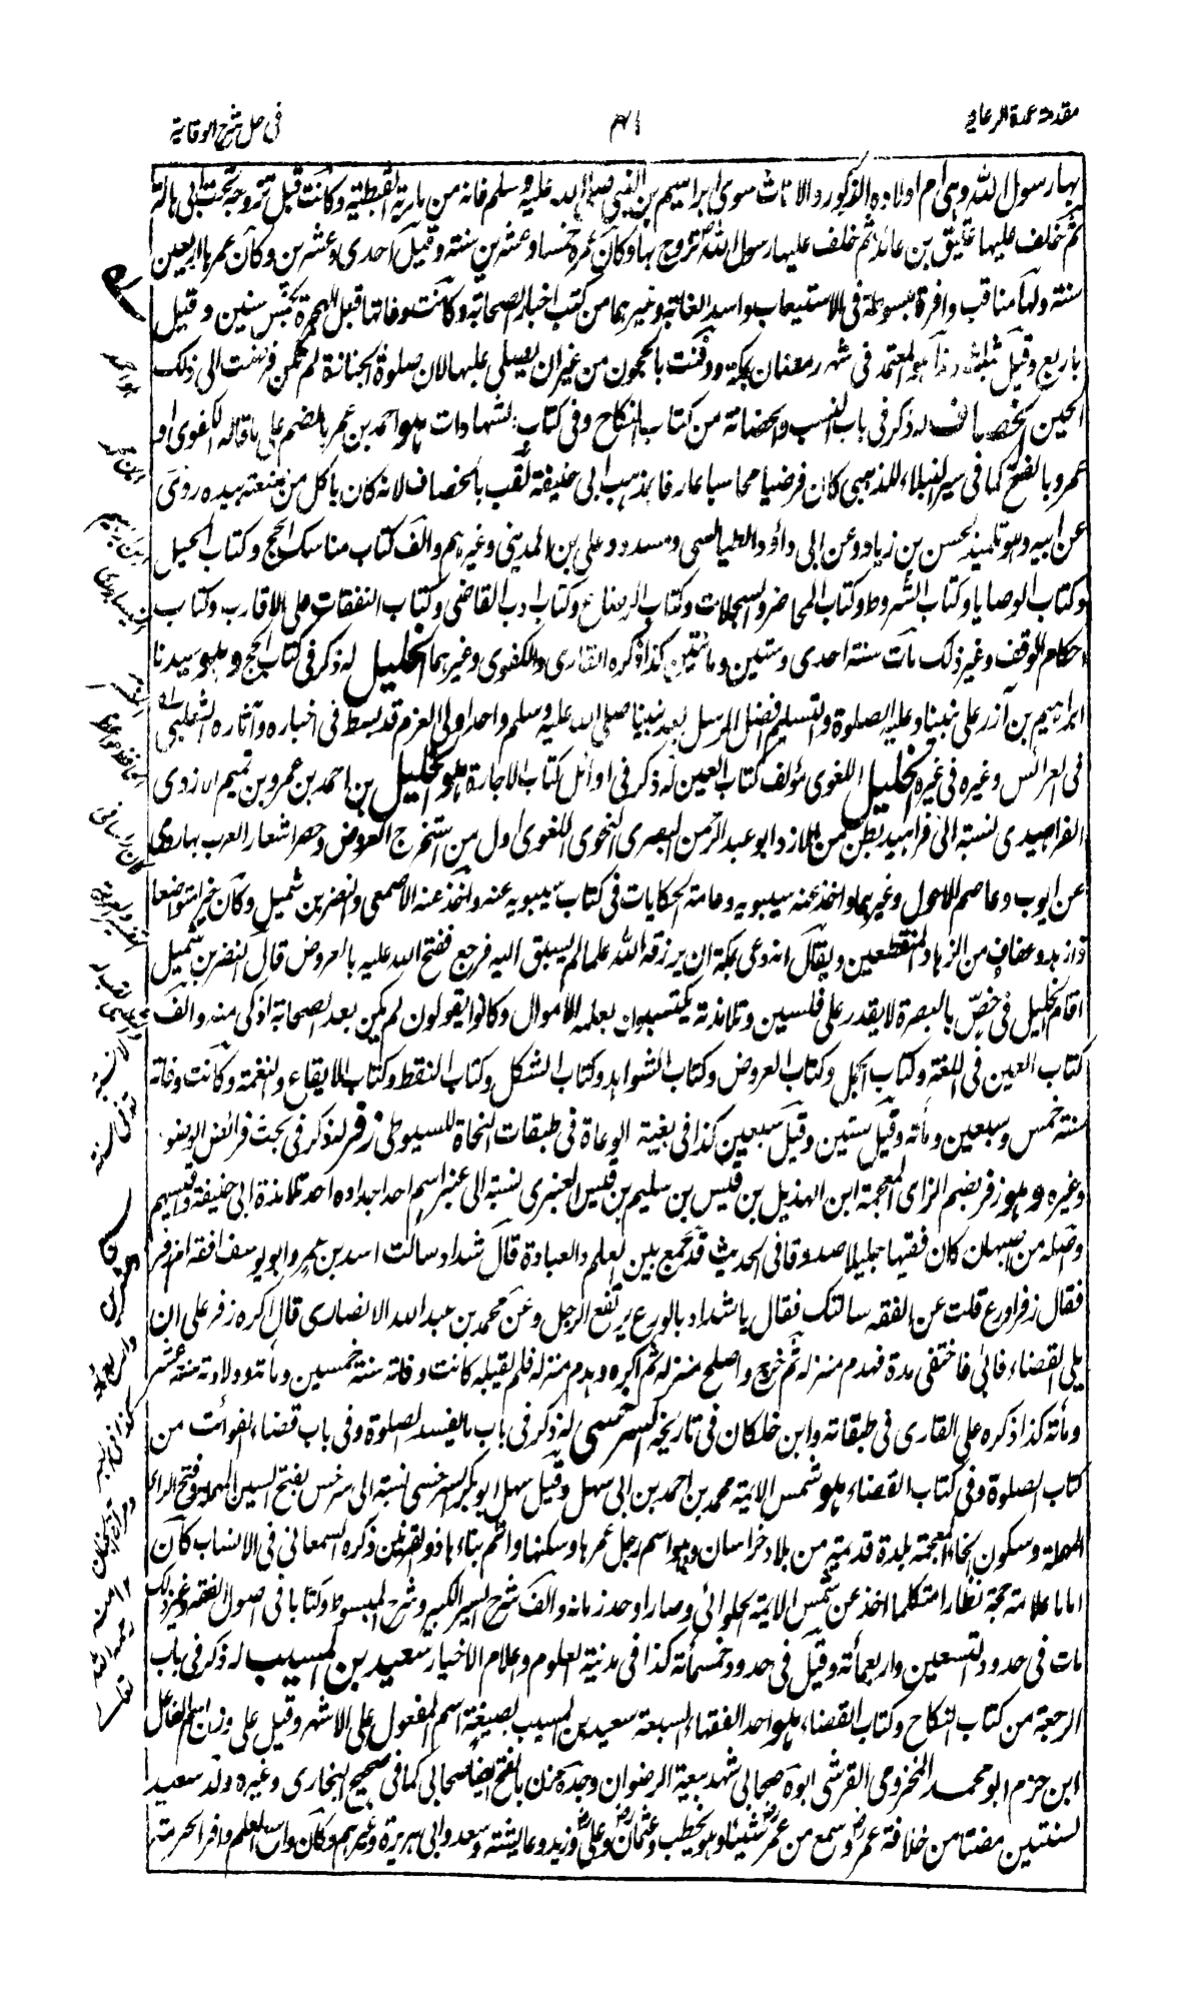 مقدمة عمدة الرعاية
في حل شرح الوقاية
بها رسول الله وهي ام اولاده الذكور والاناث سوى ابراهيم بن النبي صلى الله عليه وسلم فانه من مارية القبطية وكانت قبل تزوجه تحت ابي هالة
ثم خلف عليها عتيق بن عائذ ثم خلف عليها رسول الله تزوج بها وكان عمره خمسا وعشرين سنة وقيل احدى وعشرين وكان عمرها اربعين
سنة ولها مناقب وافرة مبسوطة في الاستيعاب واسد الغابة وغيرهما من كتب اخبار الصحابة وكانت وفاتها قبل الهجرة بخمس سنين وقيل
باربع وقيل بثلث وهذا هو المعتمد في شهر رمضان بمكة ودفنت بالحجون من غير ان يصلى عليها لان صلوة الجنازة لم تكن فرضت الى ذلك
الحين الخصاف له ذكر في باب النسب والحضانة من كتاب النكاح وفي كتاب الشهادات هو احمد بن عمر بالضم على ما قاله الكفوي او
عمرو بالفتح كما في سير النبلاء للذهبي كان فرضيا محاسبا عارفا بمذهب ابي حنيفة لقب بالخصاف لانه كان ياكل من صنعته بيده روى
عن ابيه وهو تلميذ الحسن بن زياد وعن ابي داؤد الطيالسي ومسدد وعلي بن المديني وغيرهم والف كتاب مناسك الحج وكتاب الحيل
وكتاب الوصايا وكتاب الشروط وكتاب المحاضر والسجلات وكتاب الرضاع وكتاب ادب القاضي وكتاب النفقات على الاقارب وكتاب
احكام الوقف وغير ذلك مات سنة احدى وستين ومائتين كذا ذكره القاري والكفوي وغيرهما الخليل له ذكر في كتاب الحج وهو سيدنا
ابراهيم بن آزر على نبينا وعليه الصلوة والتسليم افضل الرسل بعد نبينا صلى الله عليه وسلم واحد اولي العزم قد بسط في اخباره وآثاره الثعلبي
في العرائس وغيره في غيره الخليل اللغوي مؤلف كتاب العين له ذكر في اوائل كتاب الاجارة هو الخليل بن احمد بن عمرو بن تميم الازدي
الفراهيدي نسبة الى فراهيد بطن من الازد ابو عبد الرحمن البصري النحوي اللغوي اول من استخرج العروض وحصر اشعار العرب بها روى
عن ايوب وعاصم الاحول وغيرهما واخذ عنه سيبويه وعامة الحكايات في كتاب سيبويه عنه واخذ عنه الاصمعي والنضر بن شميل وكان خيرا متواضعا
ذا زهد وعفاف من الزهاد المنقطعين ويقال انه دعى بمكة ان يرزقه الله علما لم يسبق اليه فرجع ففتح الله عليه بالعروض قال النضر بن شميل
اقام الخليل في خص بالبصرة لا يقدر على فلسين وتلامذته يكتسبون بعلمه الاموال وكانوا يقولون لم يكن بعد الصحابة اذكى منه والف
كتاب العين في اللغة وكتاب الجمل وكتاب العروض وكتاب الشواهد وكتاب الشكل وكتاب النقط وكتاب الايقاع والنغمة وكانت وفاته
سنة خمس وسبعين ومأته وقيل ستين وقيل سبعين كذا في بغية الوعاة في طبقات النحاة للسيوطي زفر له ذكر في بحث فرائض الوضوء
وغيره وهو زفر بضم الزاى المعجمة ابن الهذيل بن قيس بن سليم بن قيس العنبري نسبة الى عنبر اسم احد اجداده احد تلامذة ابي حنيفة وقيسهم
وصله من اصبهان كان فقيها جليلا صدوقا في الحديث قد جمع بين العلم والعبادة قال شداد سالت اسد بن عمرو ابو يوسف افقه ام زفر
فقال زفر اورع قلت عن الفقه سالتك فقال يا شداد بالورع يرتفع الرجل وعن محمد بن عبد الله الانصاري قال اكره زفر على ان
يلي القضاء فابى فاختفى مدة فهدم منزله ثم خرج واصلح منزله ثم اكره وهدم منزله فلم يقبله كانت وفاته سنة خمسين ومأته وولادته سنة عشر
ومأته كذا ذكره علي القاري في طبقاته وابن خلكان في تاريخه السرخسي له ذكر في باب ما يفسد الصلوة وفي باب قضاء الفوائت من
كتاب الصلوة وفي كتاب القضاء هو شمس الائمة محمد بن احمد بن ابي سهل وقيل سهل ابو بكر السرخسي نسبة الى سرخس بفتح السين المهملة وفتح الراء
المهملة وسكون الخاء المعجمة بلدة قديمة من بلاد خراسان وهو اسم رجل عمرها وسكنها واتم بناءها ذو القرنين ذكره السمعاني في الانساب كان
اماما علامة حجة نظارا متكلما اخذ عن شمس الائمة الحلوائي وصار اوحد زمانه والف شرح السير الكبير وشرح المبسوط وكتابا في اصول الفقه وغير ذلك
مات في حدود التسعين واربعمأته وقيل في حدود خمسمأته كذا في مدينة العلوم واعلام الاخيار سعيد بن المسيب له ذكر في باب
الرجعة من كتاب النكاح وكتاب القضاء هو احد الفقهاء السبعة سعيد بن المسيب بصيغة اسم المفعول على الاشهر وقيل على وزن اسم الفاعل
ابن حزم ابو محمد المخزومي القرشي ابوه صحابي شهد بيعة الرضوان وجده حزن بالفتح ايضا صحابي كما في صحيح البخاري وغيره ولد سعيد
لسنتين مضتا من خلافة عمر وسمع من عمر شيئا وهو يخطب وعثمان وعلي وزيد وعايشة وسعد وابي هريرة وغيرهم وكان واسع العلم وافر الحرمة